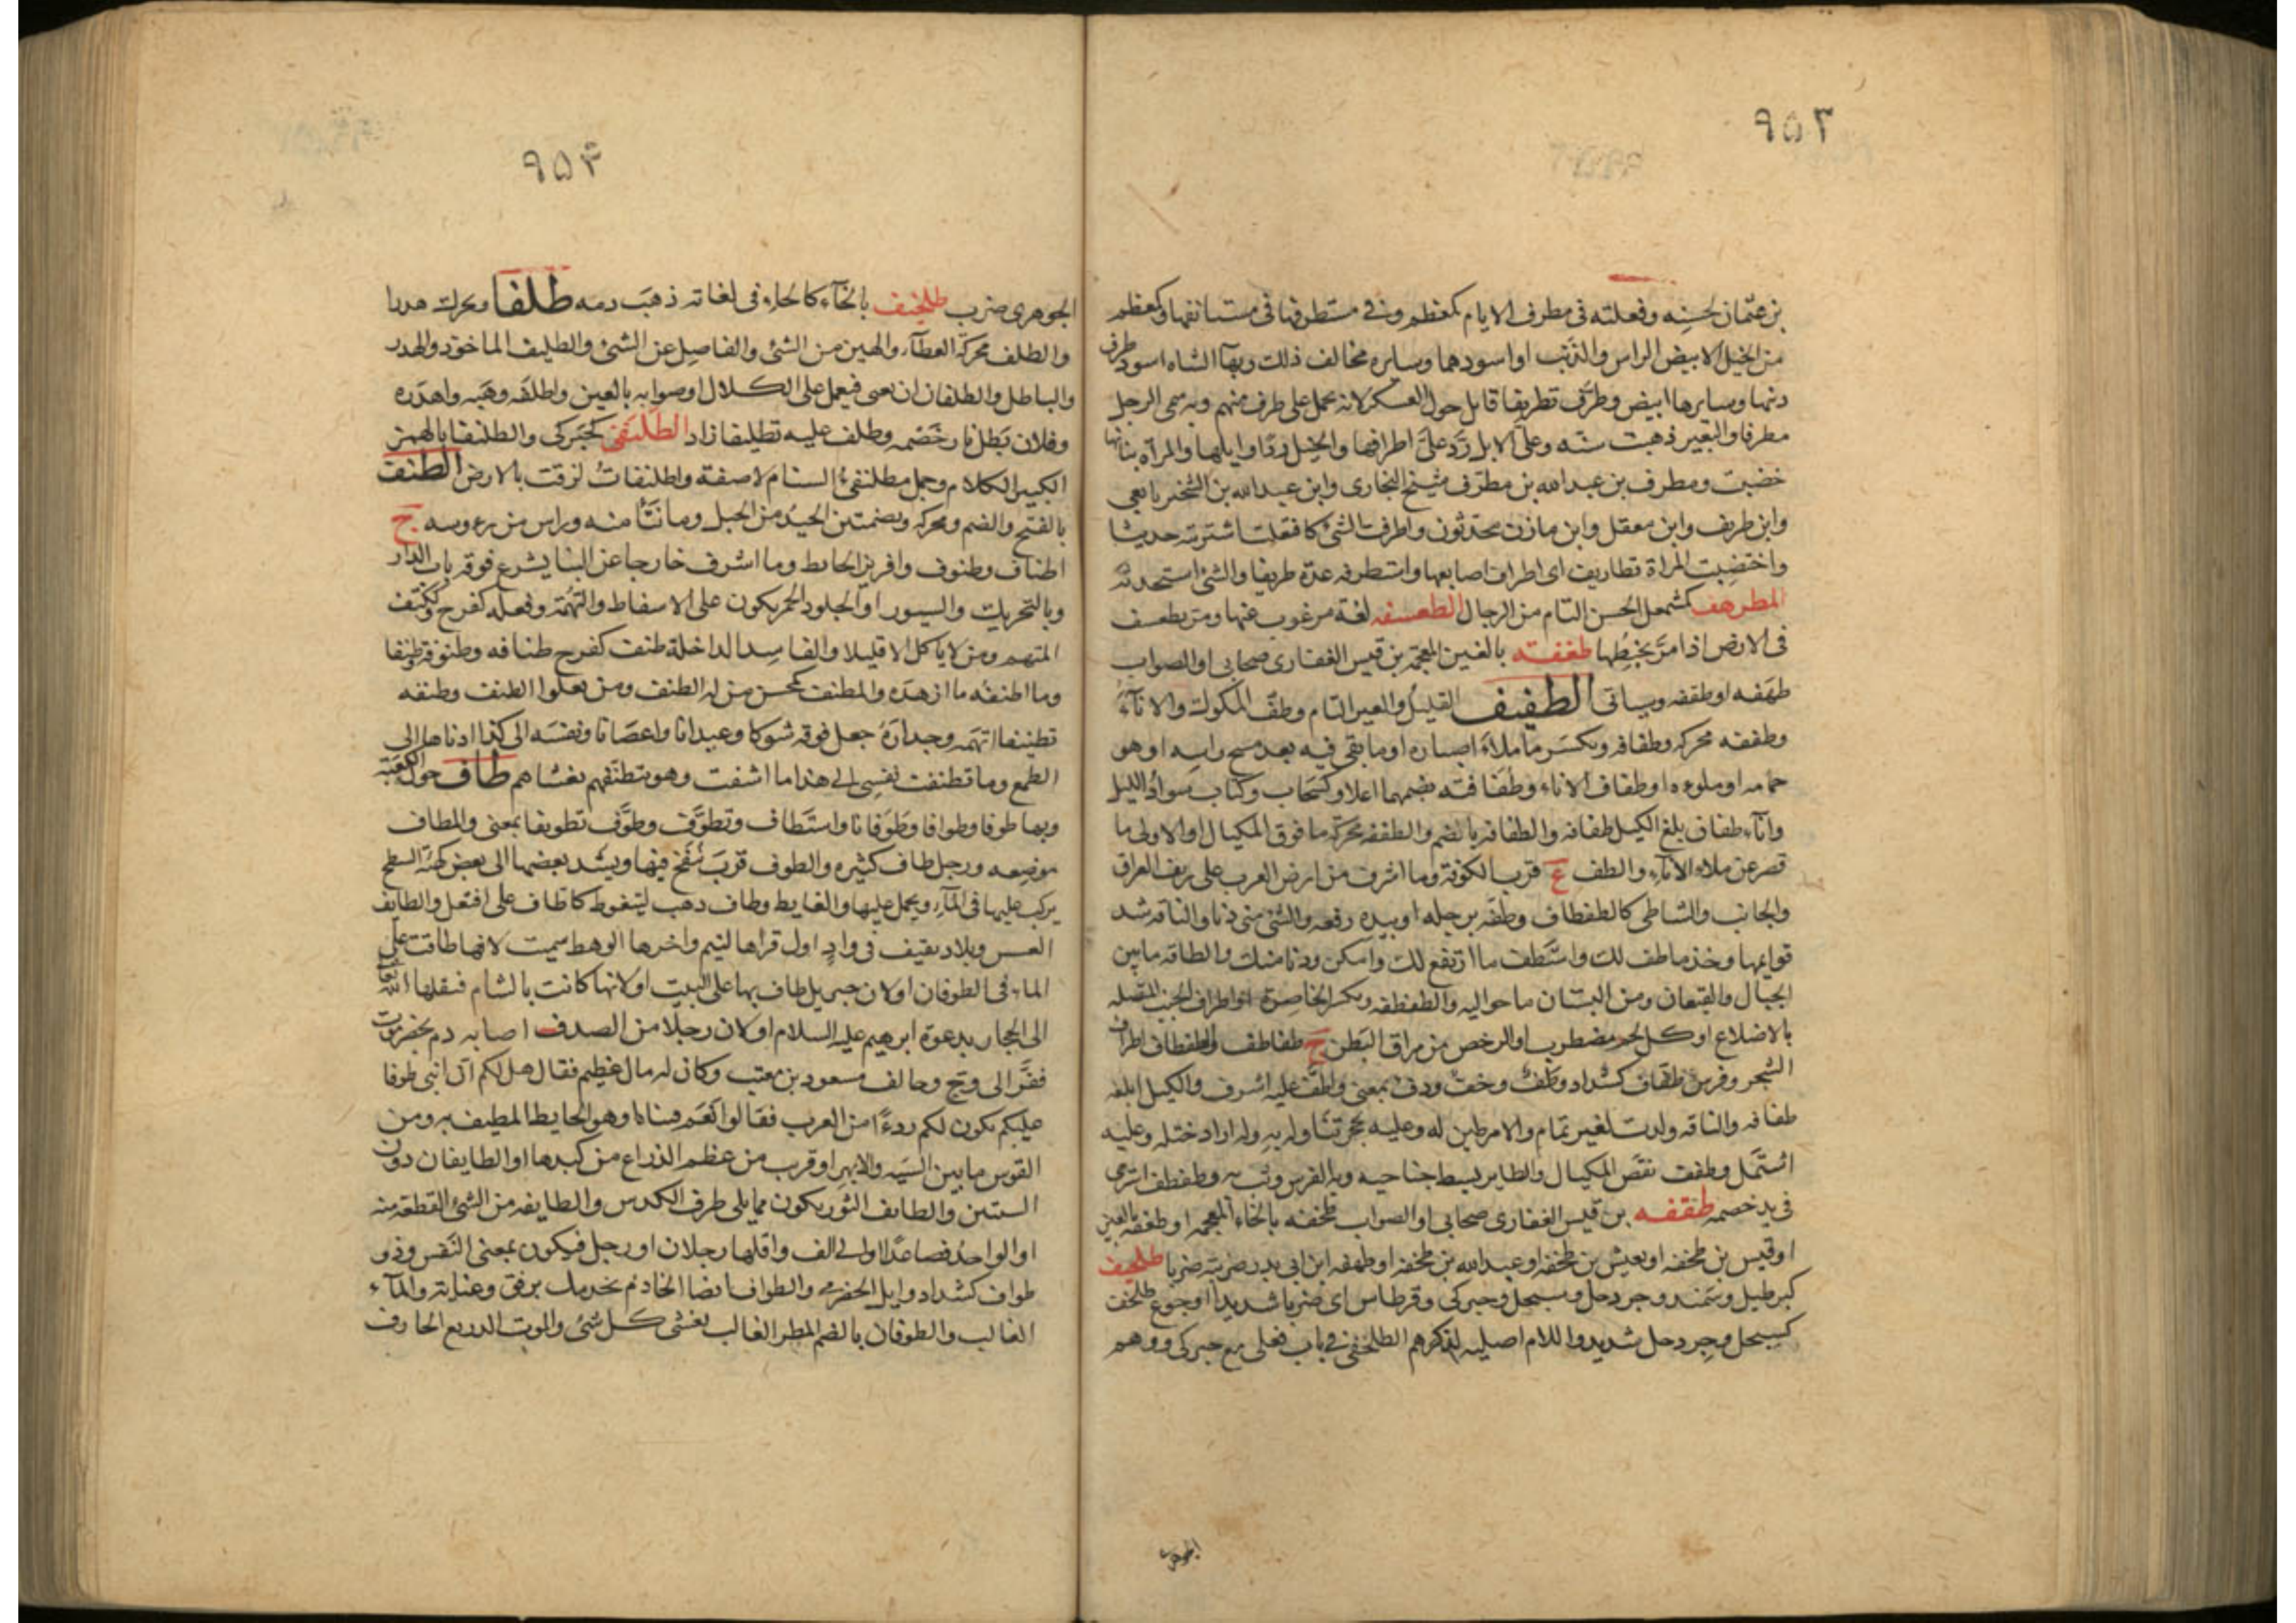 ٩۵٢
بن عثمان لحسنه وفعلته فى مطرف الايام كمعظم وفى مستطرفها فى مستانفها وكمعظم
من الخيل الابيض الراس والذنب او اسودهما وسايره مخالف ذلك وبهآ الشاه اسود طرف
ذنبها وسايرها ابيض وطرّف تطريفا قاتل حول العسكر لانه يحمل على طرف منهم وبه سمى الرجل
مطرفا والبعير ذهبت سنّه وعلىّ الابل رَدّ علىَّ اطرافها والخيل ردّ اوايلها والمرآه بنانها
خضبت ومطرف بن عبد الله بن مطرّف شيخ البخارى وابن عبد الله بن الشخير تابعى
وابن طريف وابن معقل وابن مازن محدّثون واطرفت الشئ كافتعلت اشتريته حديثا
واختضبت المراة تطاريف اى اطراف اصابعها واستطرفه عدّه طريفا والشئ استحدثه
المطرهف كمشمعل الحسن التام من الرجال الطعسفه لغة مرغوب عنها ومرّ يطعسف
فى الارض اذا مرّ يخبطها طغفته بالغين المعجمه بن قيس الغفارى صحابى او الصواب
طهفه او طقفه وياتى الطفيف القليل والغير التام وطفّ المكوك والاناء
وطففه محركه وطفافه ويكسر ما ملأ اصباره او ما بقى فيه بعد مسح راسه او هو
جمامه او ملوءه او طفاف الاناء وطفافته بضمهما اعلاه وكسَحاب وكتاب سواد الليل
واناء طفان بلغ الكيل طفافه والطفافه بالضم والطففه محركّه ما فوق المكيال او الاولى ما
قصر عن ملاء الاناء والطف ع قرب الكوفة وما اشرف من ارض العرب على ريف العراق
والجانب والشاطى كالطفطاف وطفّه برجله او بيده رفعه والشئ منى دنا والناقه شد
قوايمها وخذ ما طف لك واستَطف ما ارتفع لك وامكن ودنا منك والطافه ما بين
الجبال والقيعان ومن البستان ما حواليه والطفطفه ويكسر الخاصِرة او اطراف الجنب المتصله
بالاضلاع او كل لحم مضطرب او الرخص من مراق البَطن ج طفاطف والطفطاف اطراف
الشجر وفرس طفّاف كشداد وطفّ وخفّ ودفّ بمعنى واطفّ عليه اشرف والكيل ابلغه
طفافه والناقه ولدت لغير تمام والامر طبن له وعليه بحجر تناوله به وله اراد ختله وعليه
اشتمل وطفف نقصَ المكيال والطاير بسط جناحيه وبه الفرس وثب به وطفطف استرخى
فى يد خصمه طقفه بن قيس الغفارى صحابى او الصواب طخفه بالخاء المعجمه او طغفه بالغين
او قيس بن طخفه او يعيش بن طخفه او عبد الله بن طخفه او طهفه ابن ابى ذر ضربته ضربا طلحيف
كبرطيل وسَمند وجردحل وسبحل وحبركى وقرطاس اى ضربا شديدا وجوع طلحف
كسبحل وجردحل شديد واللام اصليه لذكرهم الطلحفى فى باب فعلى مع حبركى ووهم
الجوهرى
٩۵٣
الجوهرى ضرب طلخيف بالخآء كالحاء فى لغاته ذهبَ دمه طلفا ويحرك هدرا
والطلف محركّة العطآء والهين من الشئ والفاصل عن الشئ والطليف الماخوذ والهدر
والباطل والطلفان ان يعى فيعمل على الكلال او صوابه بالغين واطلفه وهبَه واهدَره
وفلان بَطل ثار خَصْمِه وطلف عليه تطليفا زاد الطَلَنفى كحَبركى والطلنفا بالهمز
الكبير الكلام وجمل مطلنفئُ السنام لاصقه واطلنفاتُ لزقت بالارض الطنف
بالفتح والضم ومحركه وبضمتين الحيدُ من الجبل وما نتَأ منه وراس من رءوسه ج
اطناف وطنوف وافريز الحايط وما اشرف خارجا عن البنا يشرع فوقه باب الدار
وبالتحريك والسيور او الجلود الحمر يكون على الاسفاط والتهمَة وفعله كفرح وككتف
المتهم ومن لا ياكل الا قليلا والفاسد الداخلة طنف كفرح طنافه وطنوفه وطنفا
وما اطنفُه ما ازهدَه والمطنف كمحسن من له الطنف ومن يعلوا الطنف وطنفه
تطنيفا اتهمه وجدارَهُ جعل فوقه شوكا وعيدانا واغصانا ونفسَه الى كذا ادناها الى
الطمع وما تطنفت نفسِى الى هذا ما اشفت وهو يتطنفهم يغشاهم طاف حول الكعبة
وبها طوفا وطوافا وطَوَفانا واستَطاف وتطوَّف وطوَّف تطويفا بمعنى والمطاف
موضِعه ورجل طاف كثيره والطوف قرَب يُنفخ فيها ويشد بعضها الى بعض كهئة السطح
يركب عليها فى المآء ويحمل عليها والغايط وطاف ذهب ليتغوط كاطاف على افتعل والطايف
العسس وبلاد ثقيف فى وادٍ اول قراها لقيم واخرها الوهط سميت لانها طافت على
الماء فى الطوفان او لان جبريل طاف بها على البيت او لانها كانت بالشام فنقلها الله تعالى
الى الحجاز بدعوة ابرهيم عليه السلام او لان رجلا من الصدف اصابه دم بحضرموت
ففَرَّ الى وَج وحالف مسعود بن معتب وكان له مال عظيم فقال هل لكم ان ابنى طوفا
عليكم يكون لكم ردءًا من العرب فقالوا نَعَم فبناه وهو الحايط المطيف به ومن
القوس ما بين السيَه والابهر او قرب من عظم الذراع من كبدها او الطايفان دون
السيتين والطايف الثور يكون مما يلى طرف الكدس والطايفه من الشئ القطعَة منه
او الواحدُ فصاعدًا او الى الف واقلها رجلان او رجل فيكون بمعنى النَفس وذو
طواف كشداد وايل الحضرمى والطواف ايضا الخادم يخدمك برفق وعناية والمآء
الغالب والطوفان بالضم المطر الغالب يغشى كل شئ والموت الذريع الجارف